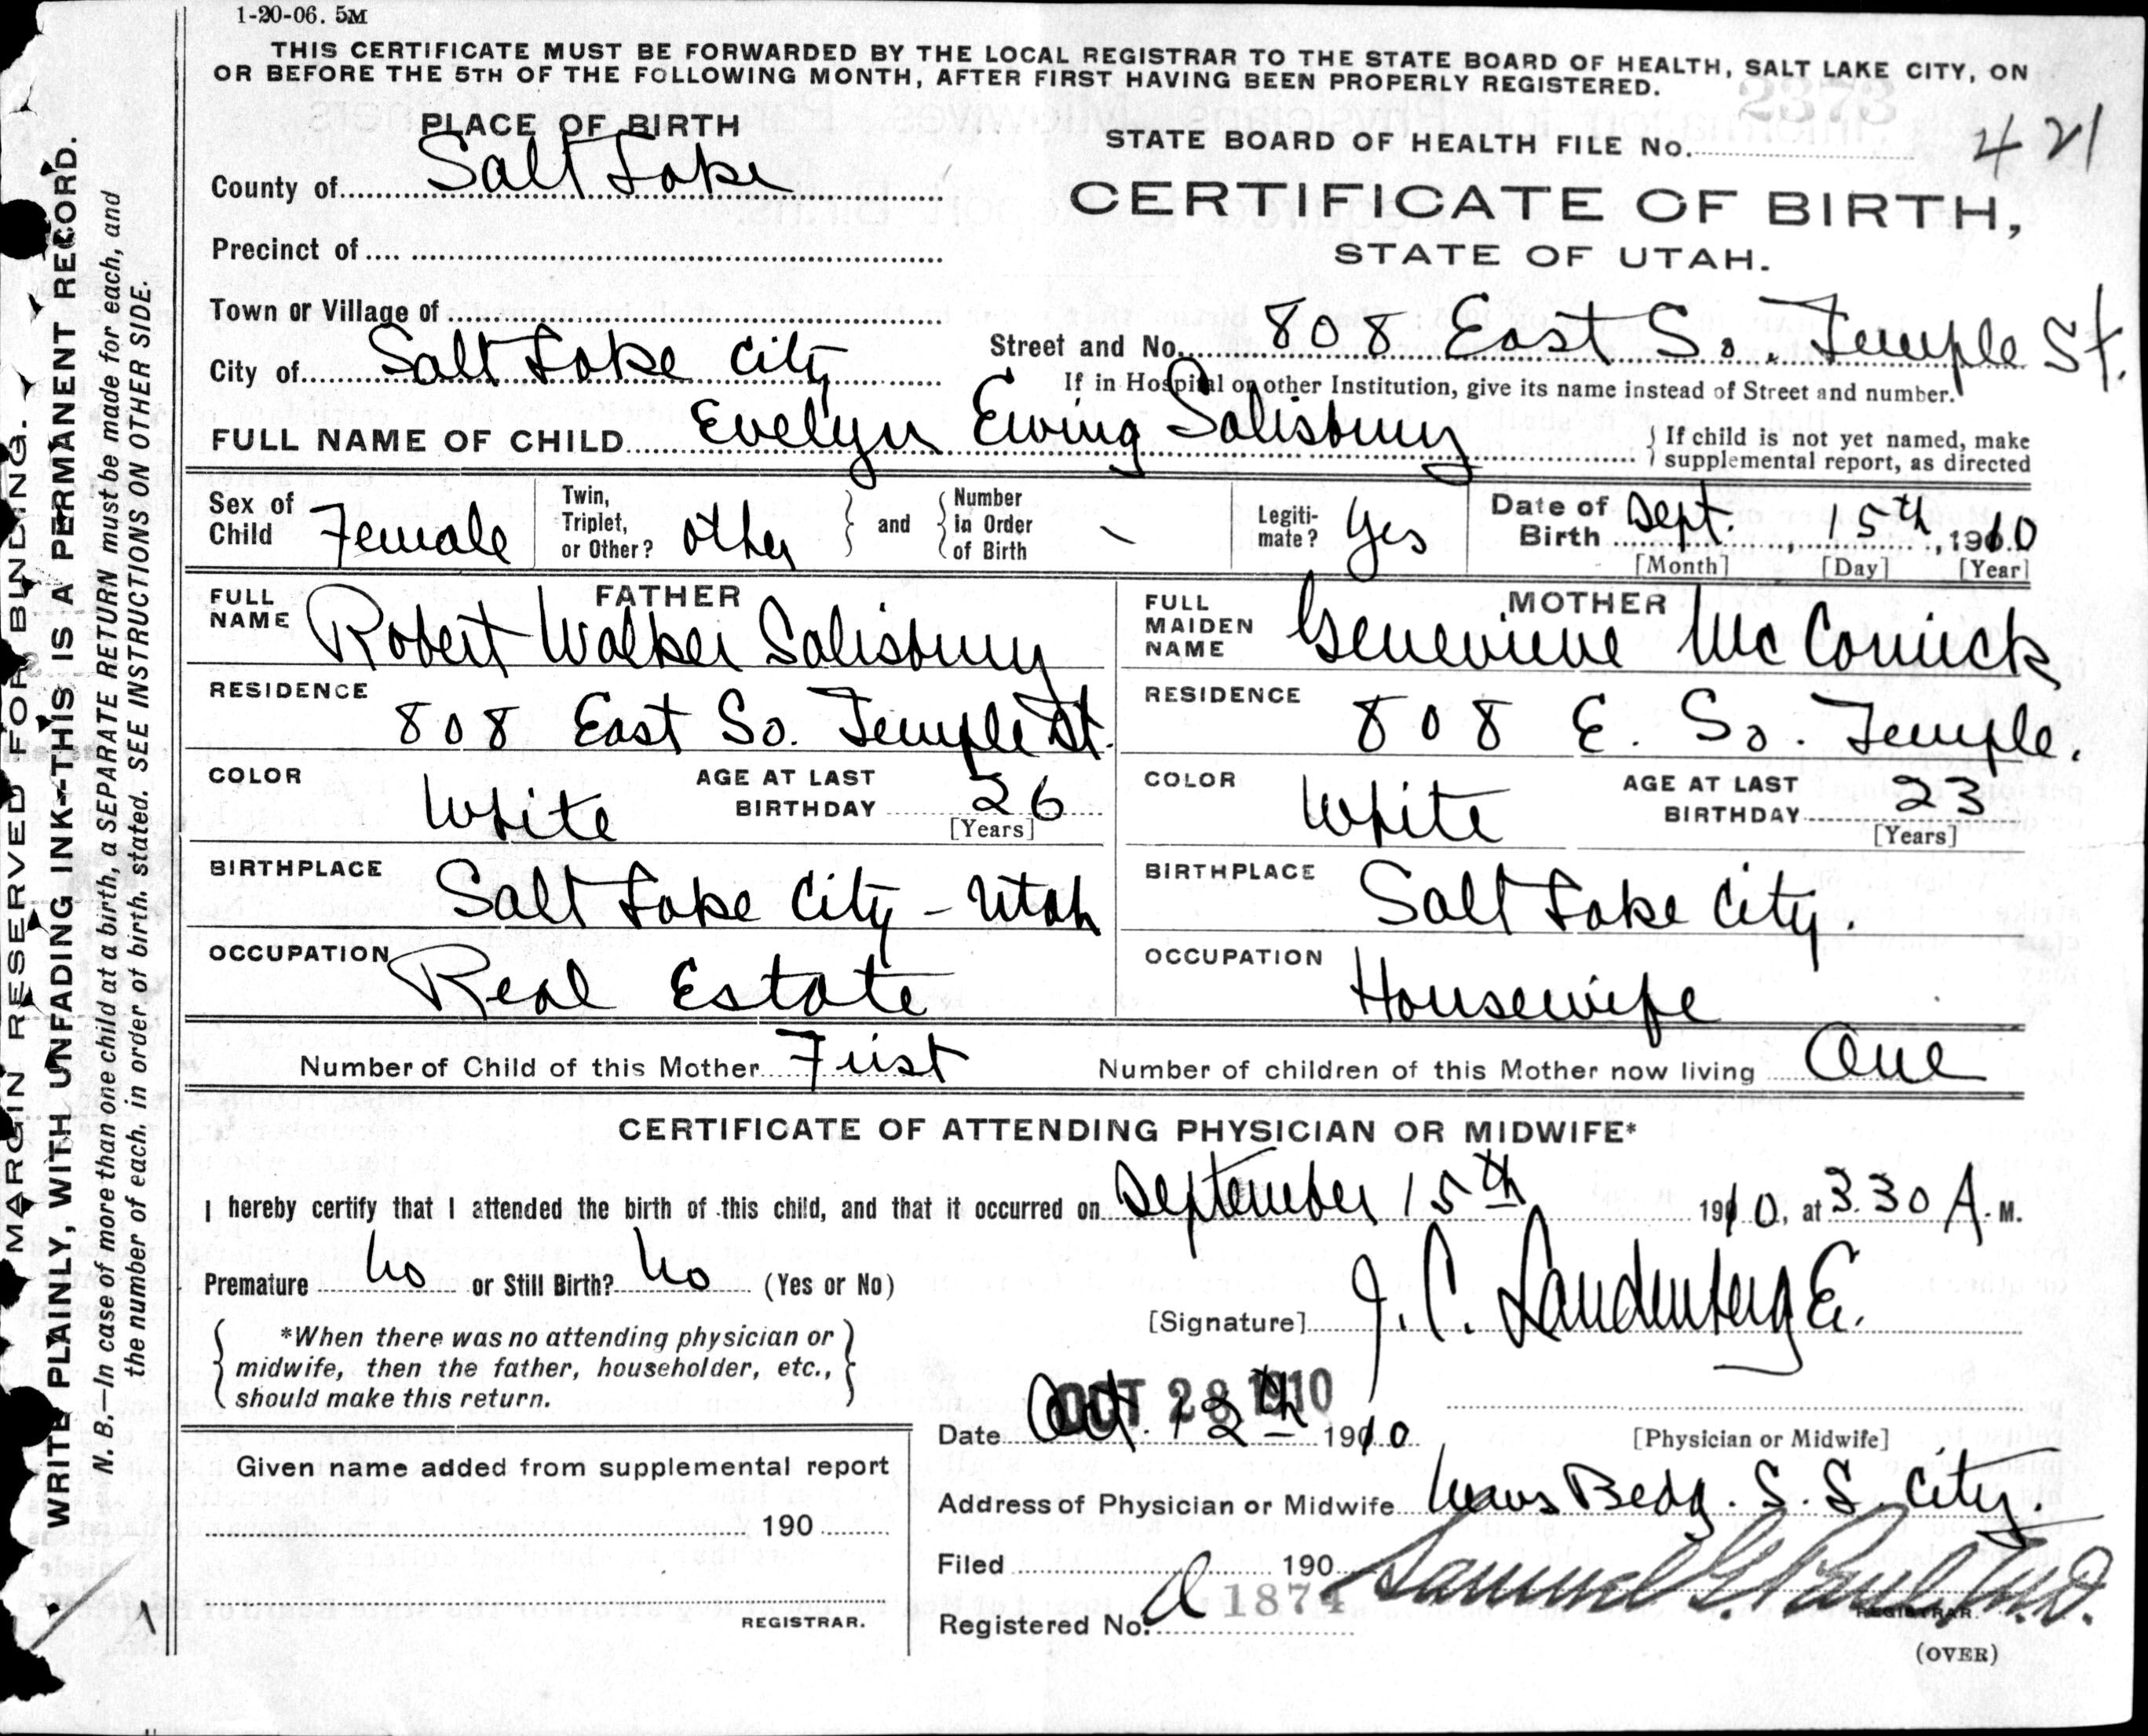 1-20-06. 5M
THIS CERTIFICATE MUST BE FORWARDED BY THE LOCAL REGISTRAR TO THE STATE BOARD OF HEALTH, SALT LAKE CITY, ON
OR BEFORE THE 5TH OF THE FOLLOWING MONTH, AFTER FIRST HAVING BEEN PROPERLY REGISTERED.
2373
PLACE OF BIRTH
STATE BOARD OF HEALTH FILE No. 421
County of Salt Lake
CERTIFICATE OF BIRTH,
STATE OF UTAH.
Precinct of
Town or Village of
City of Salt Lake City
Street and No. 808 East So. Temple St.
If in Hospital or other Institution, give its name instead of Street and number.
FULL NAME OF CHILD Evelyn Ewing Salisbury
If child is not yet named, make
supplemental report, as directed
Sex of Child Female
Twin, Triplet, or Other? other and Number in Order of Birth -
Legitimate? Yes
Date of Birth Sept. 15th, 1910
[Month] [Day] [Year]
FATHER
FULL NAME Robert Walker Salisbury
RESIDENCE 808 East So. Temple St.
COLOR White AGE AT LAST BIRTHDAY 26
[Years]
BIRTHPLACE Salt Lake City - Utah
OCCUPATION Real Estate
MOTHER
FULL MAIDEN NAME Genevieve McCornick
RESIDENCE 808 E. So. Temple.
COLOR White AGE AT LAST BIRTHDAY 23
[Years]
BIRTHPLACE Salt Lake City.
OCCUPATION Housewife
Number of Child of this Mother First Number of children of this Mother now living One
CERTIFICATE OF ATTENDING PHYSICIAN OR MIDWIFE*
I hereby certify that I attended the birth of this child, and that it occurred on September 15th 1910, at 3.30 A. M.
Premature No or Still Birth? No (Yes or No)
[Signature] J. C. Landenberge
*When there was no attending physician or
midwife, then the father, householder, etc.,
should make this return.
OCT 28 1910
Date Oct. 12th 1910
[Physician or Midwife]
Given name added from supplemental report
190
REGISTRAR.
Address of Physician or Midwife Bedg. S. L. City.
Filed 190
Samuel G. Paul M.D.
REGISTRAR.
Registered No. a 1874
(OVER)
MARGIN RESERVED FOR BINDING.
WRITE PLAINLY, WITH UNFADING INK--THIS IS A PERMANENT RECORD.
N. B.—In case of more than one child at a birth, a SEPARATE RETURN must be made for each, and
the number of each, in order of birth, stated. SEE INSTRUCTIONS ON OTHER SIDE.